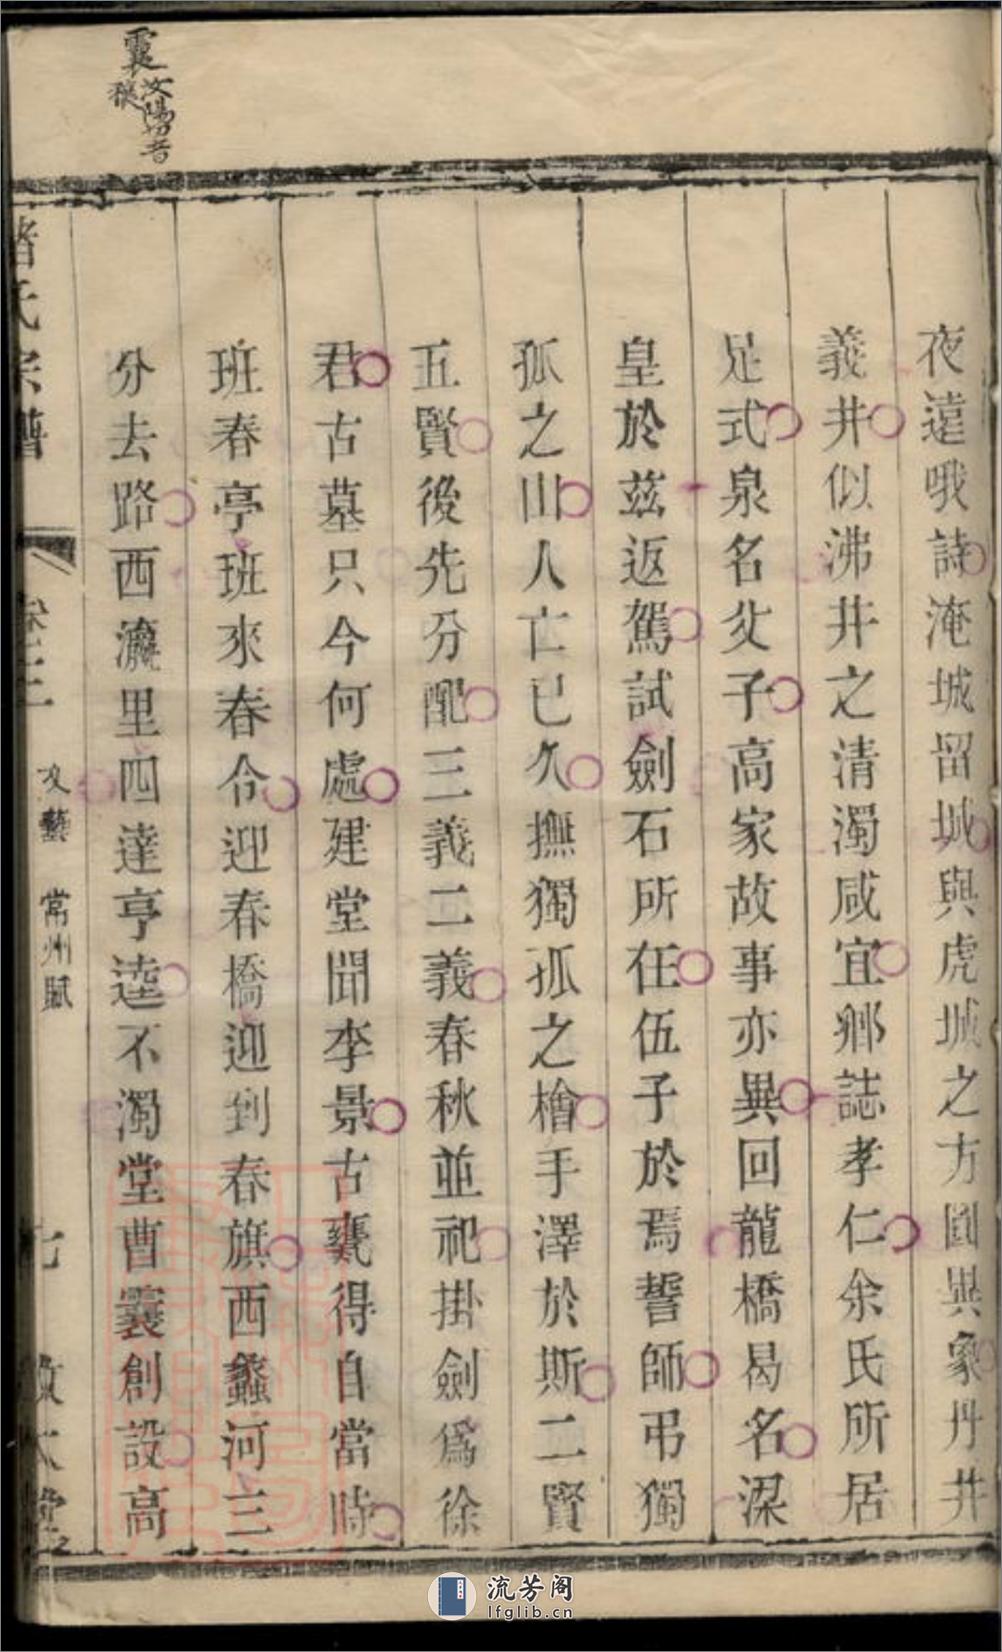 夜遠哦詩淹城留城與虎城之方圓異象丹井
義井似沸井之清濁咸宜鄉誌孝仁余氏所居
足式泉名父子高家故事亦異回龍橋曷名梁
皇於茲返駕試劍石所在伍子於焉誓師弔獨
孤之山人亡已久撫獨孤之檜手澤於斯二賢
五賢後先分配三義二義春秋並祀掛劍為徐
君古墓只今何處建堂聞李景古甕得自當時
班春亭班來春令迎春橋迎到春旗西蠡河三
分去路西瀛里四達亨逵不濁堂曹䙚創設高
氏宗譜
卷之二
文藝
常州賦
七
敬大堂
汝陽切音
流芳阁
lfglib.cn